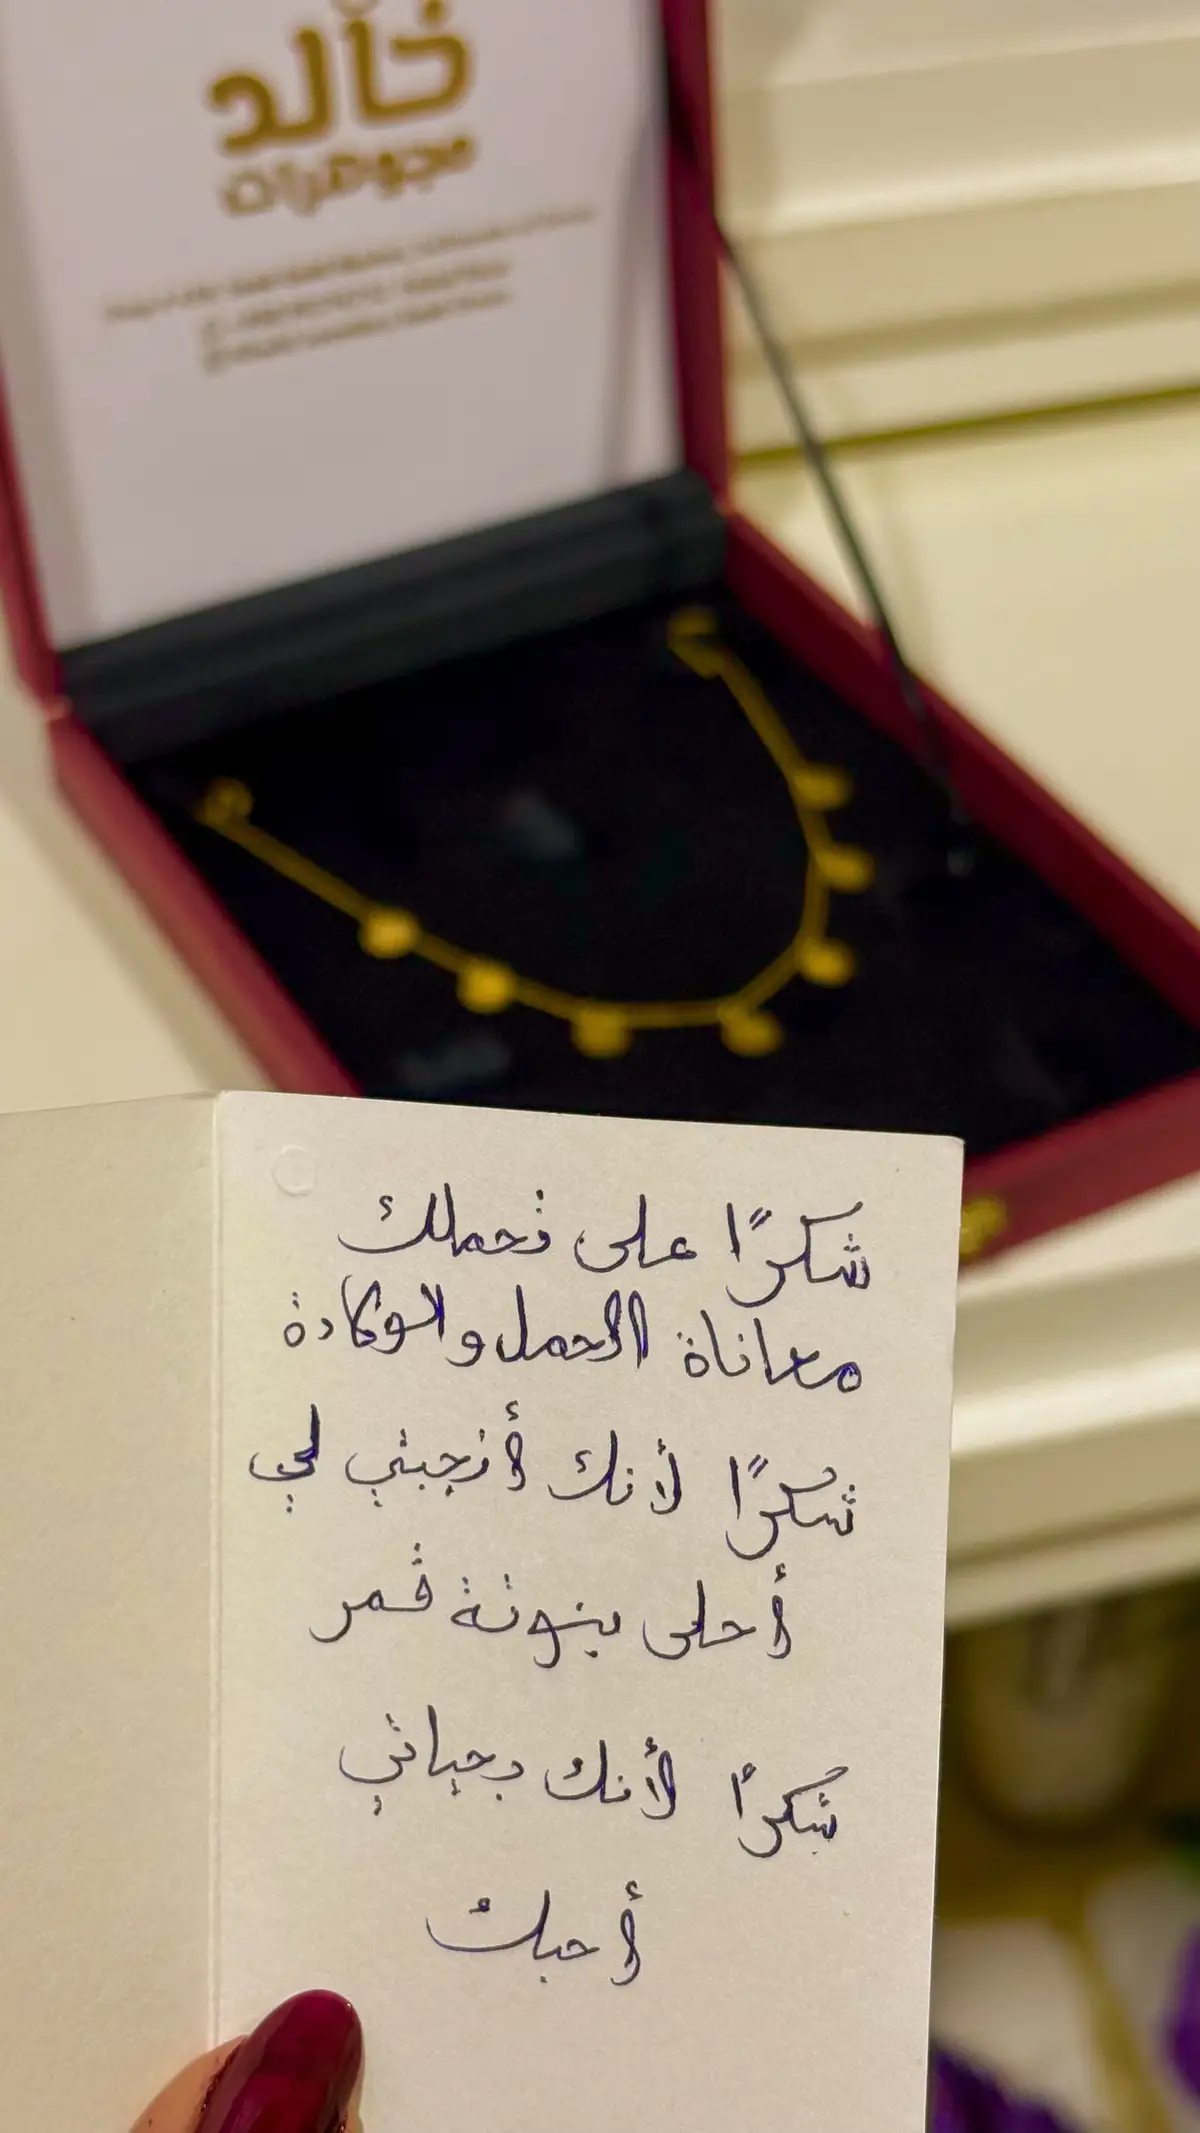 خالد
مجوهرات
شكرًا على تحملك
معاناة الحمل والوكادة
شكرًا لأنك أنجبتي لي
أحلى بنوتة قمر
شكرًا لأنك بحياتي
أحبك